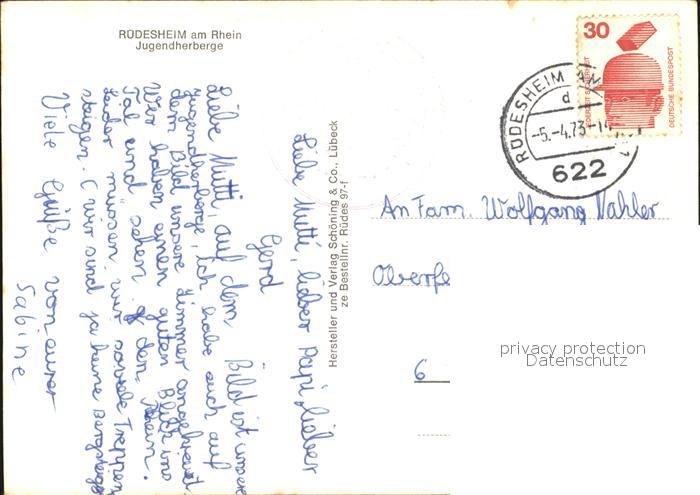 RÜDESHEIM am Rhein
Jugendherberge
30
DEUTSCHE BUNDESPOST
RÜDESHEIM AM
d
-5.-4.73-1
622
An Fam. Wolfgang Vahler
Oberfe
6
privacy protection
Datenschutz
Hersteller und Verlag Schöning & Co., Lübeck
ze Bestellnr. Rüdes 97-f
Liebe Mutti, lieber Papi, lieber
Gerd
Liebe Mutti, auf dem Bild ist unsere
Jugendherberge, ich habe auch auf
dem Bild unsere Zimmer angekreuzt.
Wir haben einen guten Blick ins
Tal und sehen den Rhein.
Leider müssen wir soviele Treppen
steigen. (wir sind ja keine Bergsteige
Viele Grüße von eurer
Sabine